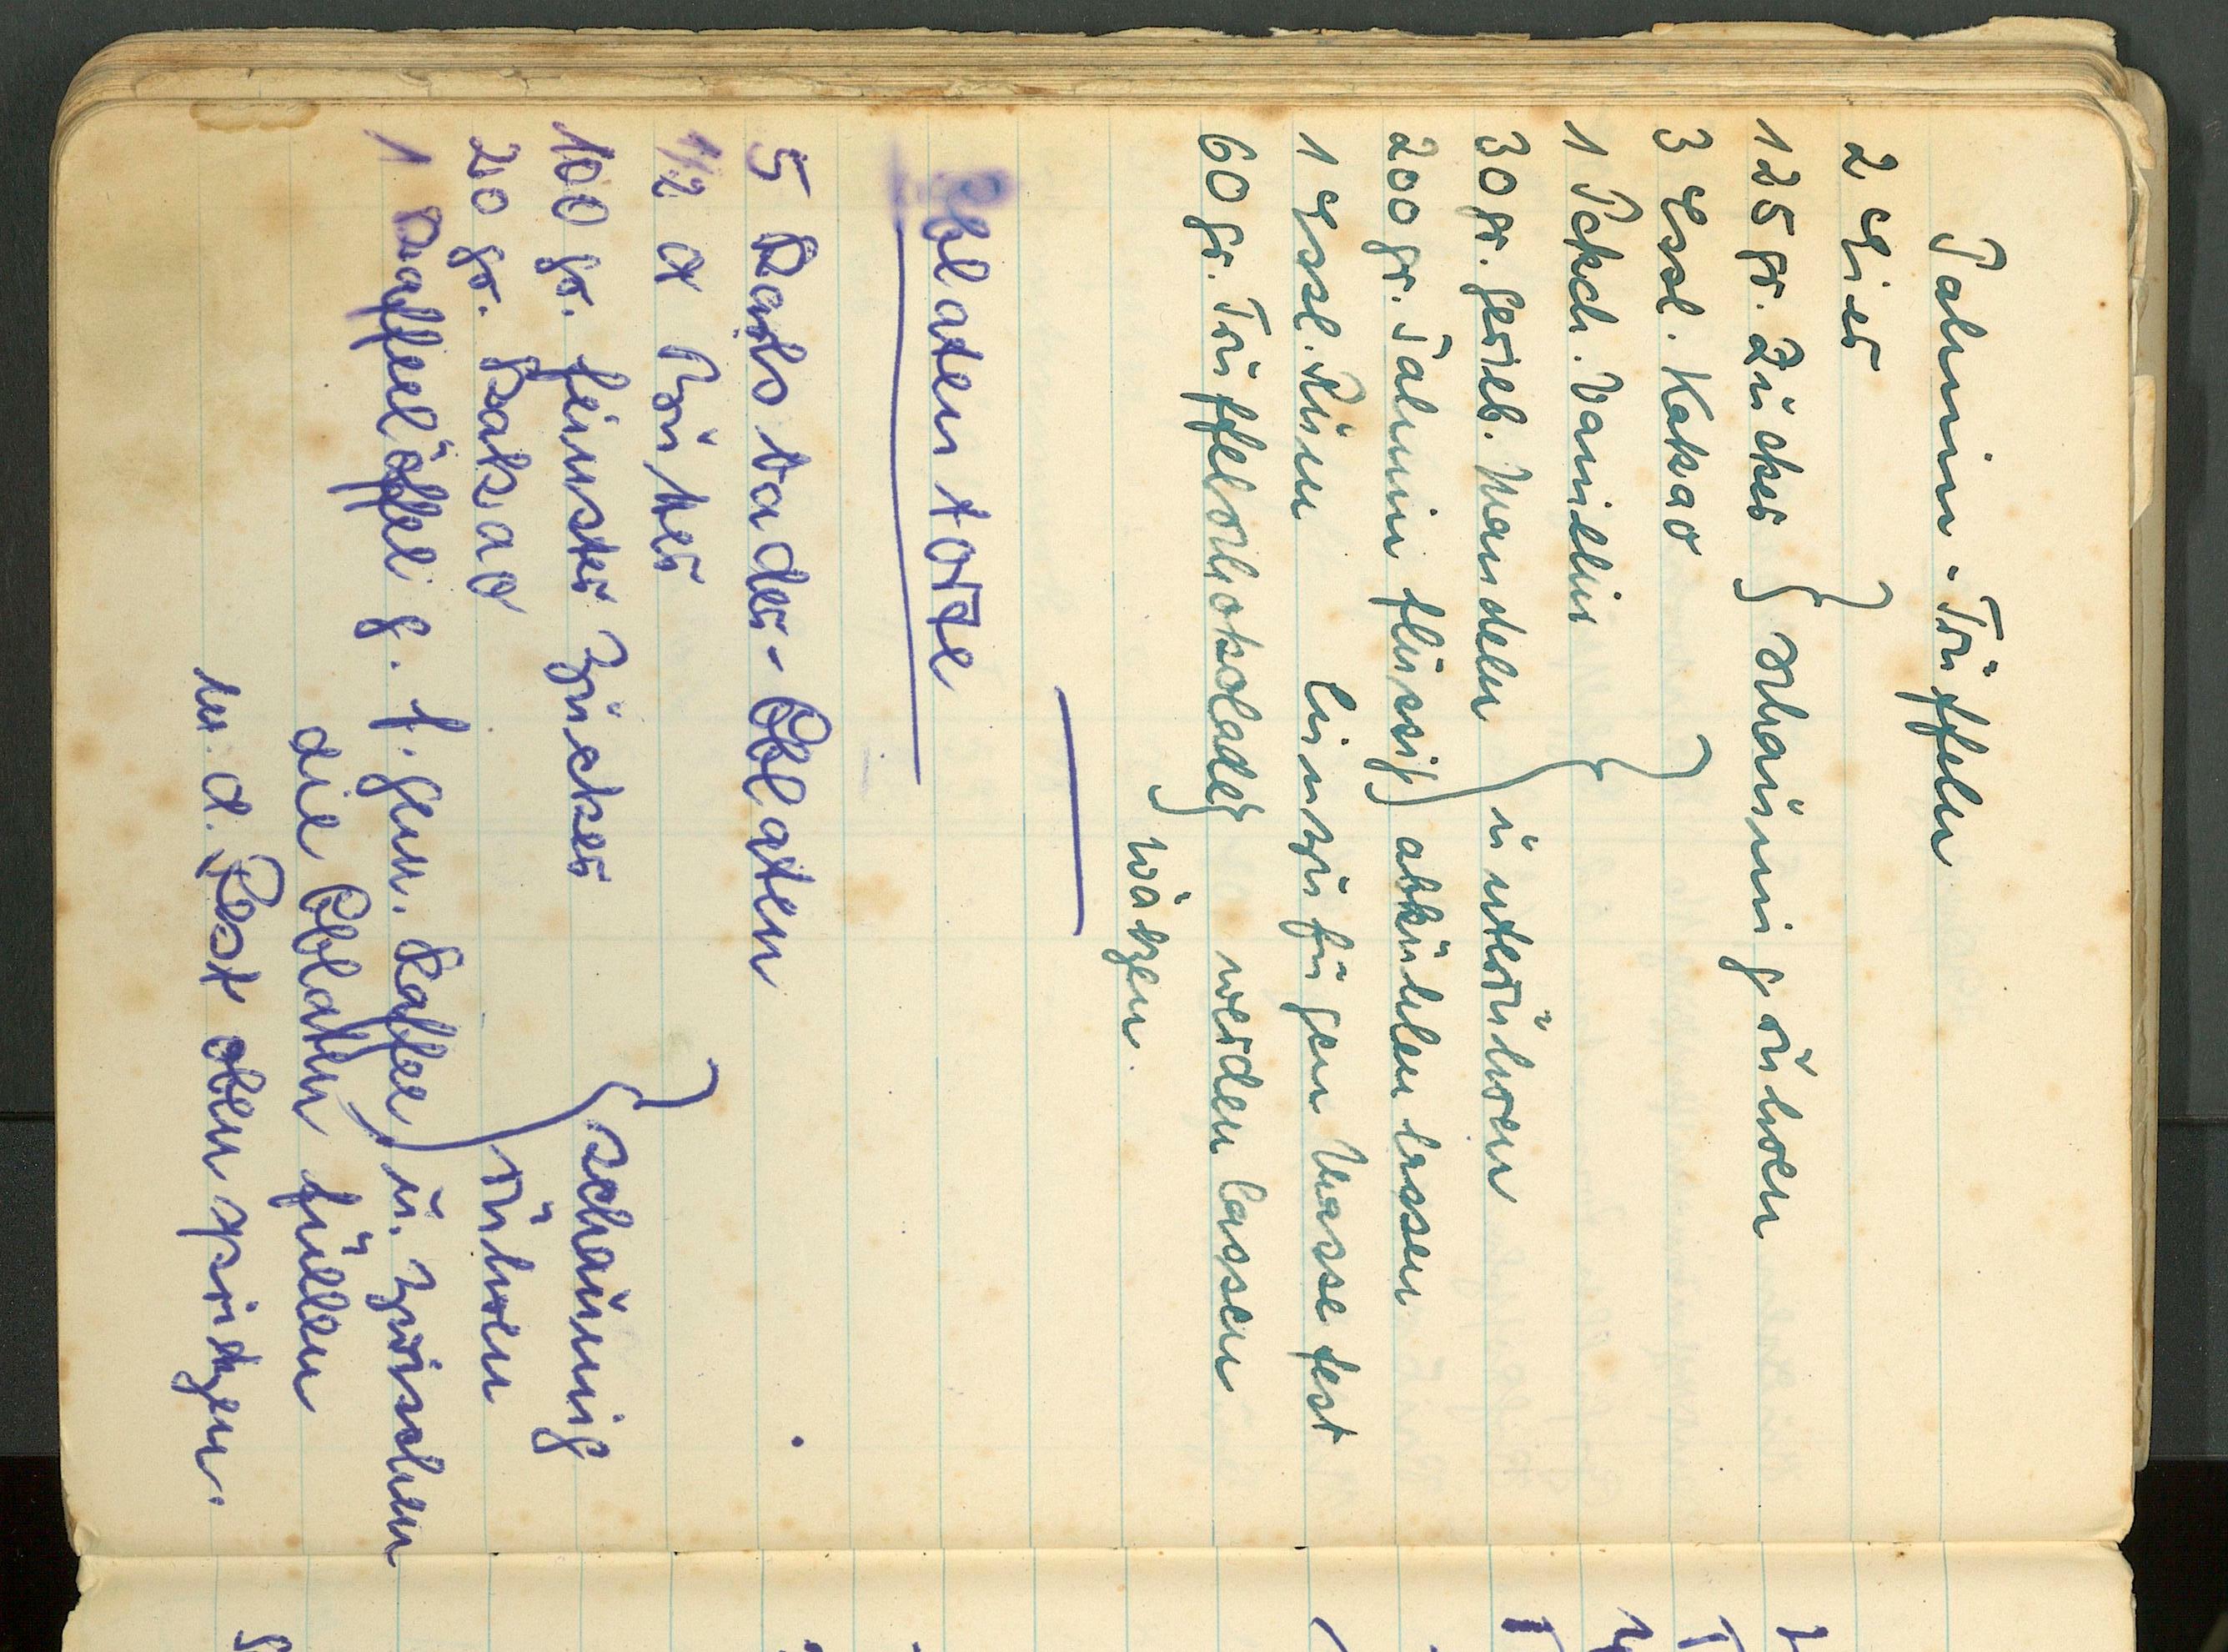 Palmin-Trüffeln
2 Eier
125 gr. Zucker } schaumig rühren
3 Essl. Kakao
1 Pckch. Vanillin
30 gr. gerieb. Mandeln } unterrühren
200 gr. Palmin flüssig) abkühlen lassen
1 Essl. Rum hinzufügen Masse fest
60 gr. Trüffelschokolade werden lassen
wälzen.
Oblatentorte
5 Karlsbader-Oblaten
1/2 ℔ Butter
100 gr. feinster Zucker } schaumig
20 gr. Kakao ) rühren
1 Kaffeelöffel g. f. gem. Kaffee) u. zwischen
die Oblaten füllen
m. d. Rest oben spritzen.